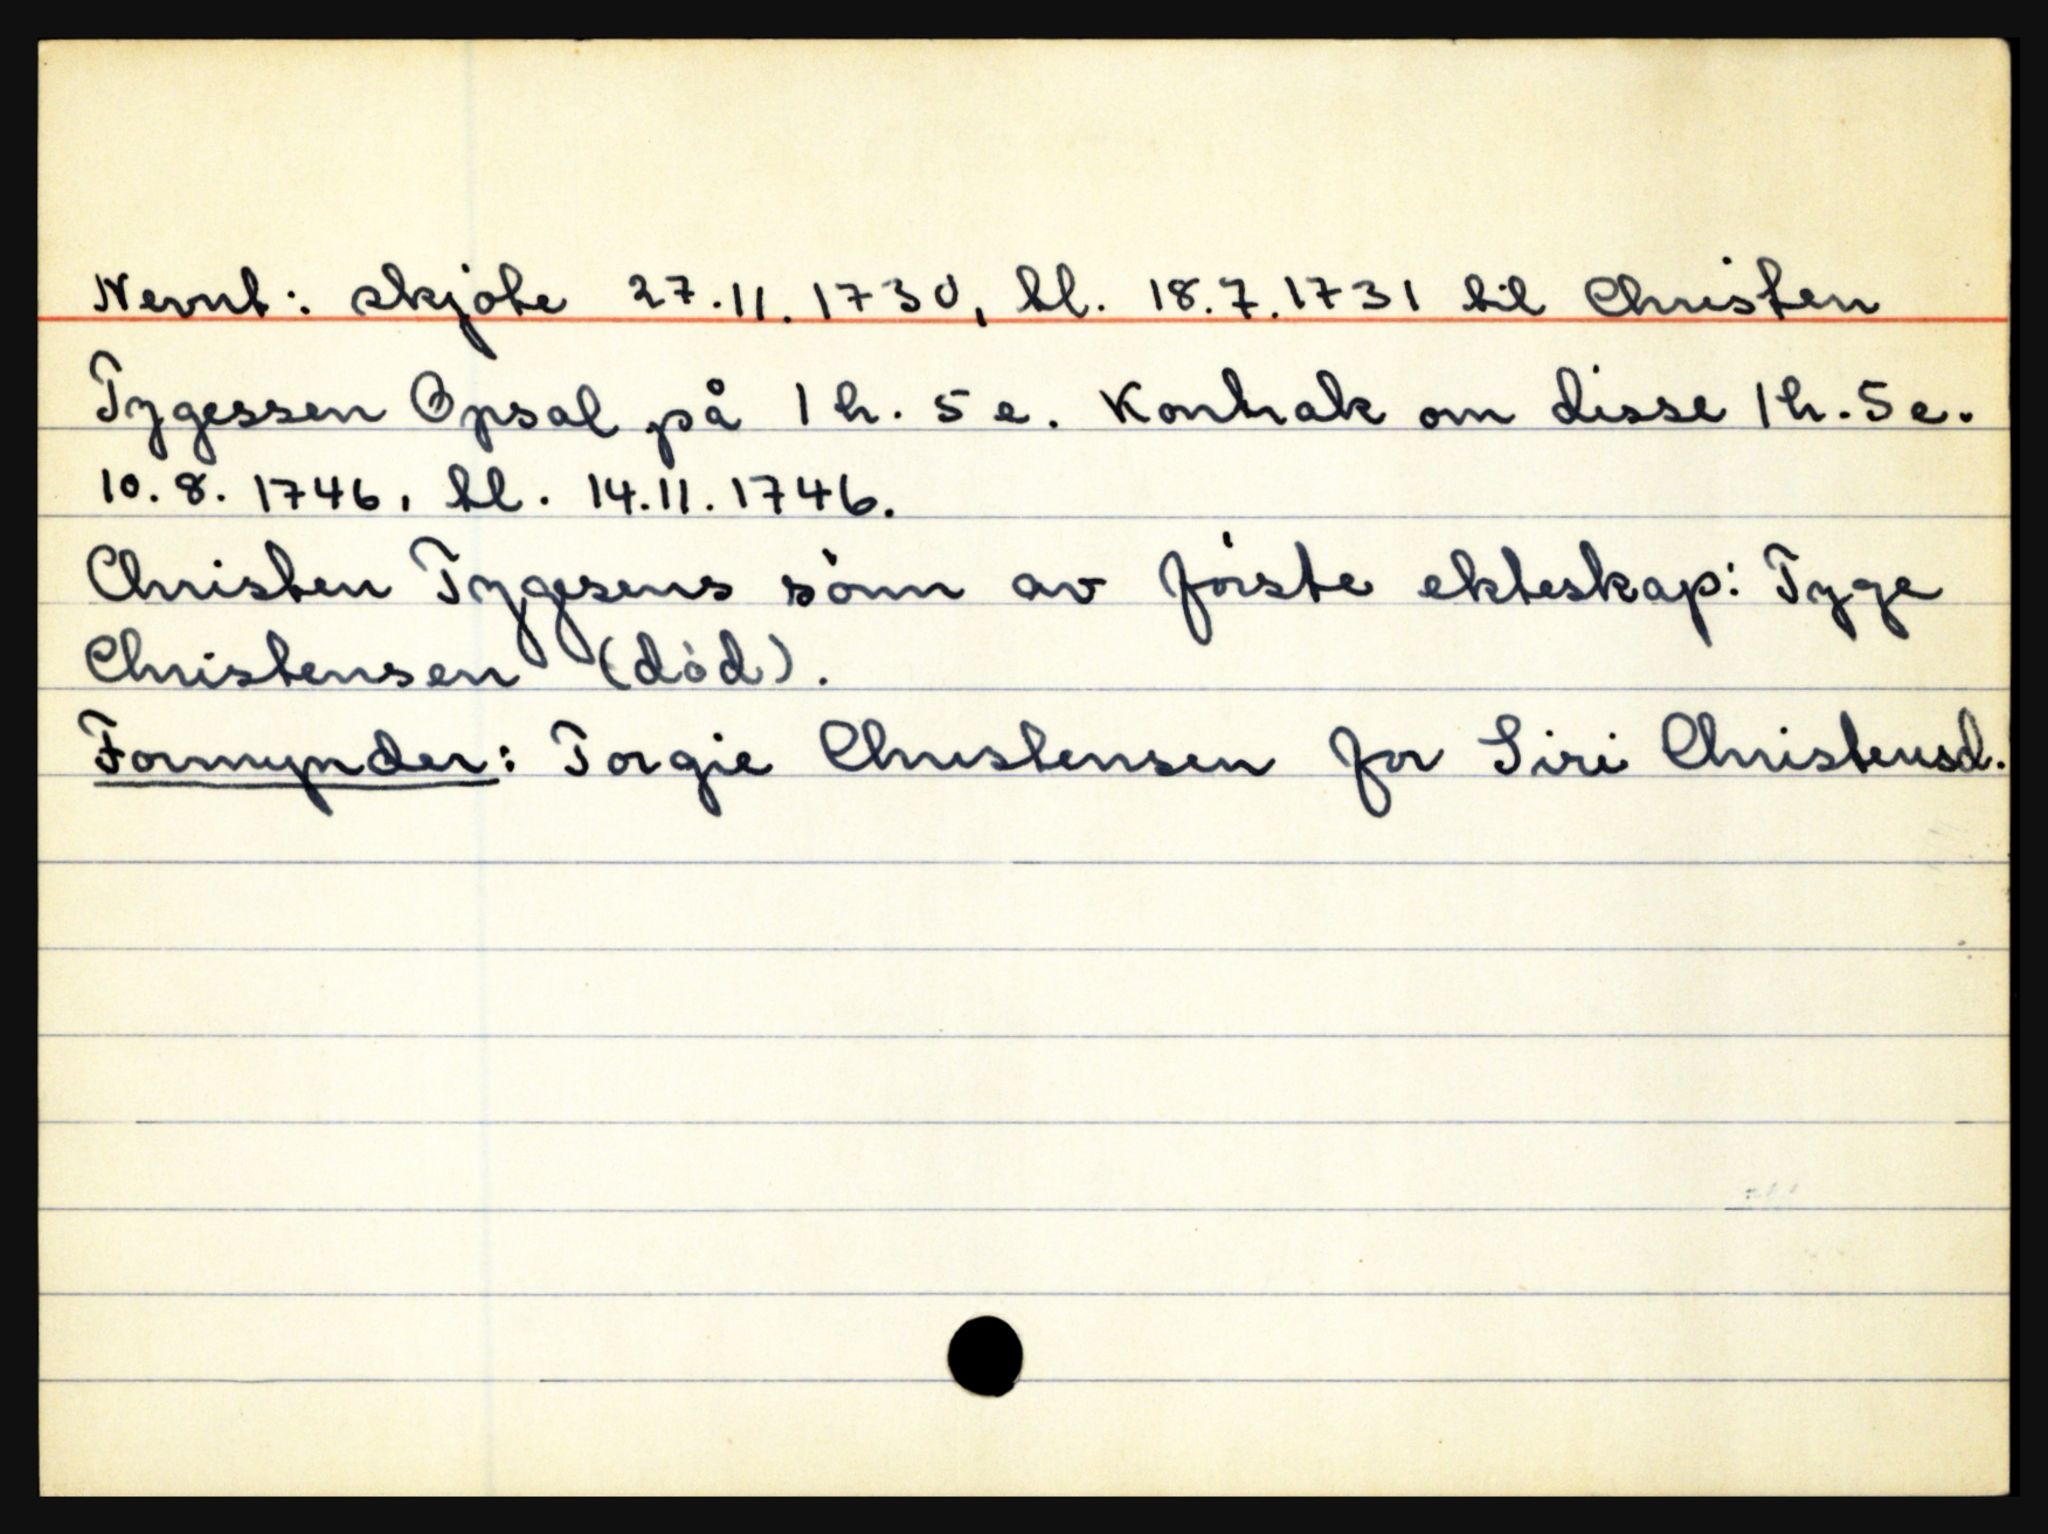 Nevnt: skjøte 27.11.1730, tl. 18.7.1731 til Christen
Tygessen Opsal på 1 h. 5 e. Kontrak om disse 1 h. 5 e.
10.8.1746, tl. 14.11.1746.
Christen Tygesens sønn av første ekteskap: Tyge
Christensen (død).
Formynder: Torgie Christensen for Siri Christensd.